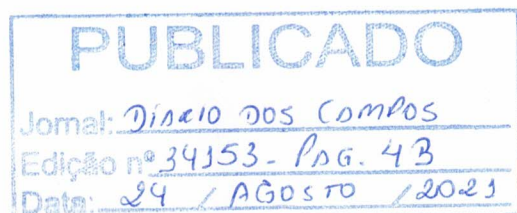 PUBLICADO
Jornal: DIÁRIO DOS CAMPOS
Edição nº 34153 - PÁG. 4B
Data: 24 / AGOSTO / 2021